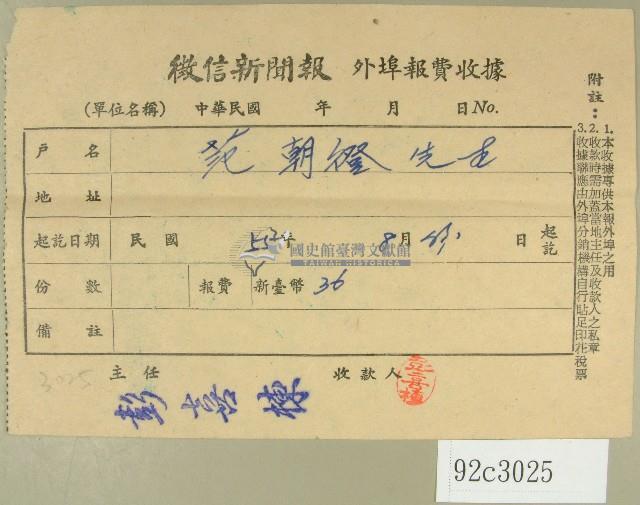 徵信新聞報 外埠報費收據
(單位名稱) 中華民國 年 月 日 No.
戶名 范朝燈 先生
地址
起訖日期 民國 年 8月 日 起訖
份數 報費 新臺幣 36
備註
主任 收款人
彭喜棟
3025
附註：
1.本收據專供本報外埠之用
2.收款時需加蓋當地主任及收款人之私章
3.收據聯應由外埠分銷機構自行貼足印花稅票
國史館臺灣文獻館
TAIWAN HISTORICA
92c3025